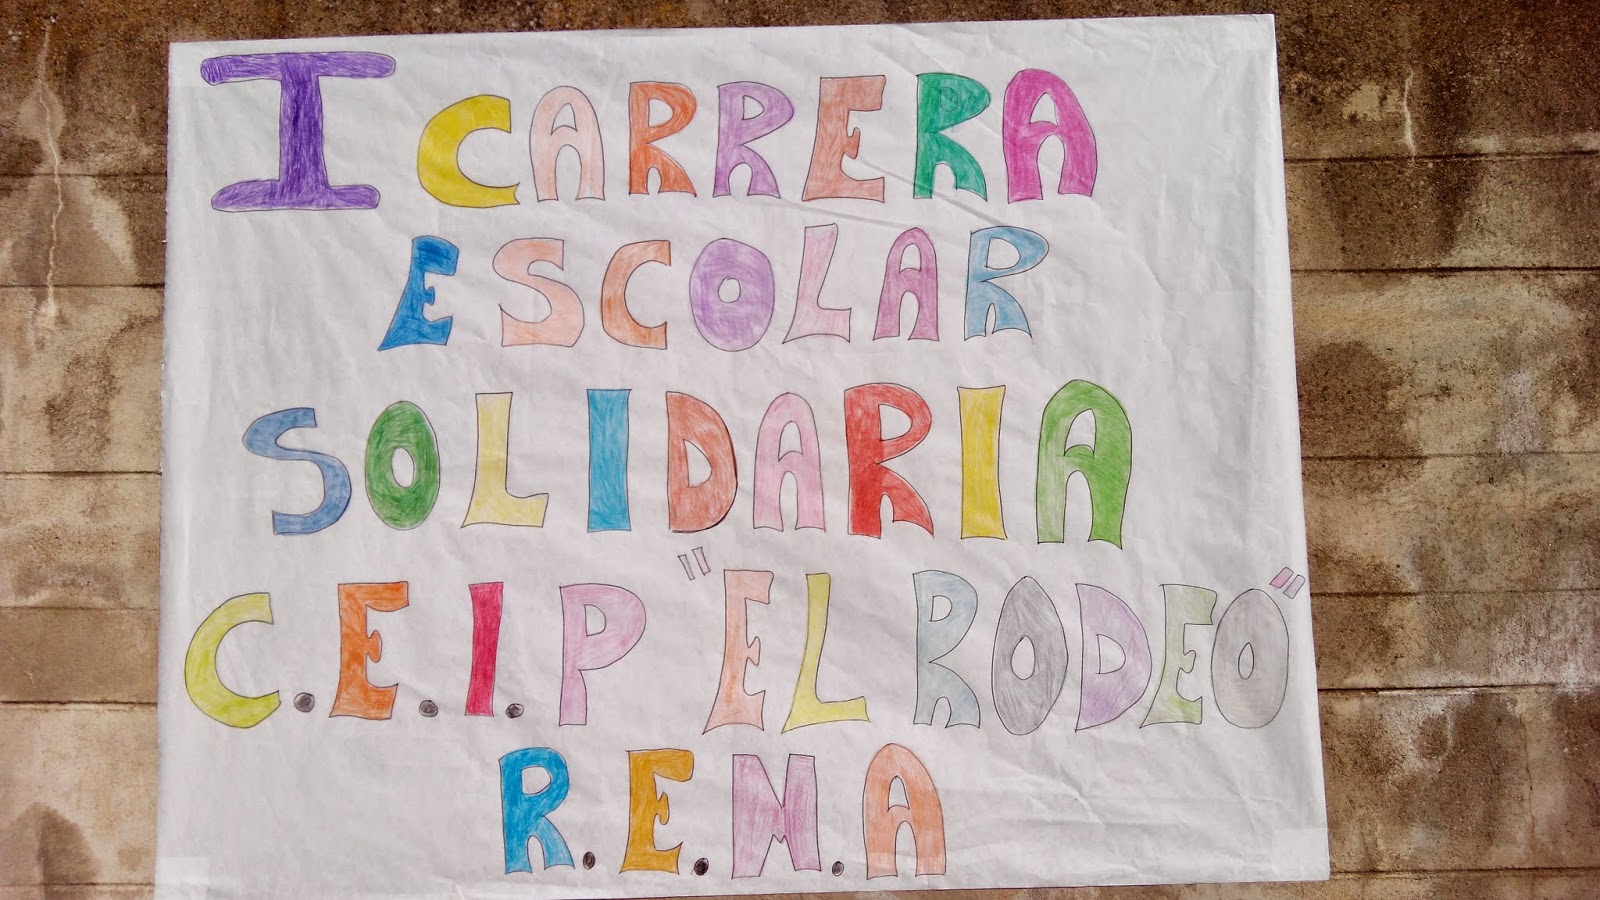 I CARRERA
ESCOLAR
SOLIDARIA
C.E.I.P "EL RODEO"
R.E.M.A